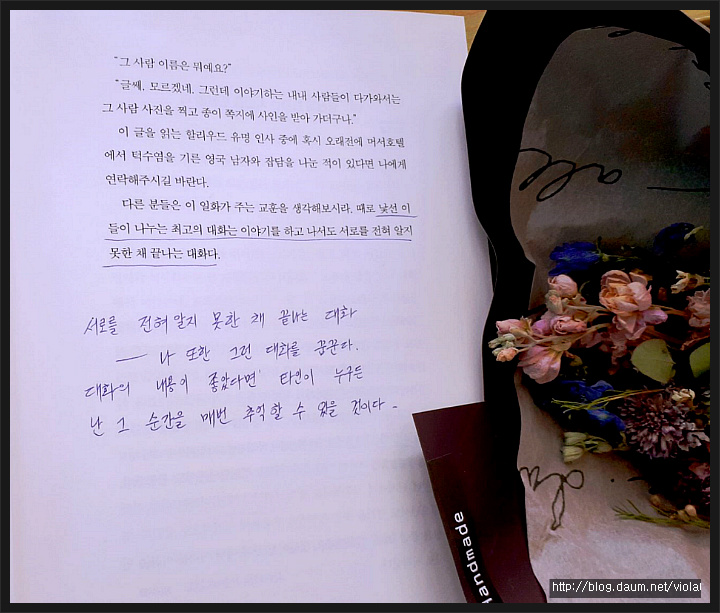 "그 사람 이름은 뭐예요?"
"글쎄, 모르겠네. 그런데 이야기하는 내내 사람들이 다가와서는
그 사람 사진을 찍고 종이 쪽지에 사인을 받아 가더구나."
이 글을 읽는 할리우드 유명 인사 중에 혹시 오래전에 머서호텔
에서 턱수염을 기른 영국 남자와 잡담을 나눈 적이 있다면 나에게
연락해주시길 바란다.
다른 분들은 이 일화가 주는 교훈을 생각해보시라. 때로 낯선 이
들이 나누는 최고의 대화는 이야기를 하고 나서도 서로를 전혀 알지
못한 채 끝나는 대화다.
서로를 전혀 알지 못한 채 끝나는 대화
— 나 또한 그런 대화를 꿈꾼다.
대화의 내용이 좋았다면 타인이 누구든
난 그 순간을 매번 추억할 수 있을 것이다-
all
handmade
http://blog.daum.net/violal